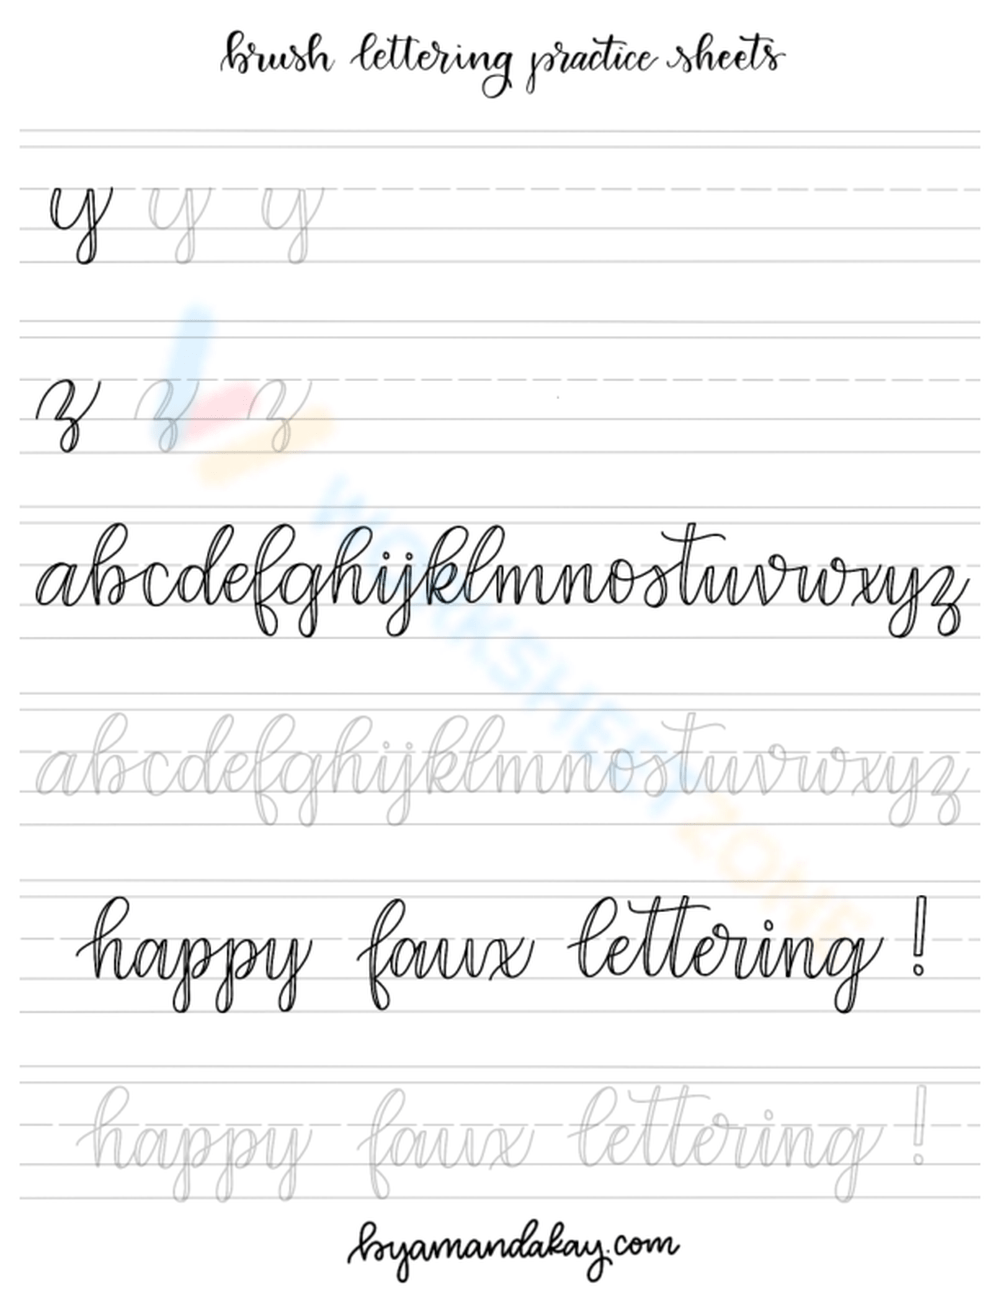 brush lettering practice sheets
y y y
z z z
abcdefghijklmnostuvwxyz
abcdefghijklmnostuvwxyz
happy faux lettering !
happy faux lettering !
byamandakay.com
WORKSHEETZONE